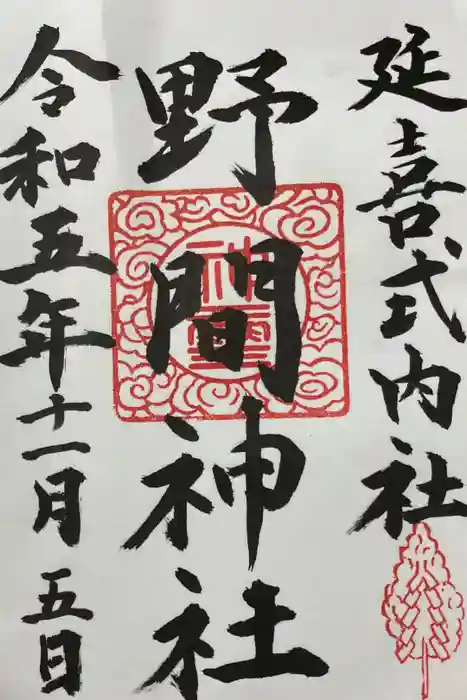 延喜式内社
野間神社
令和五年十一月五日